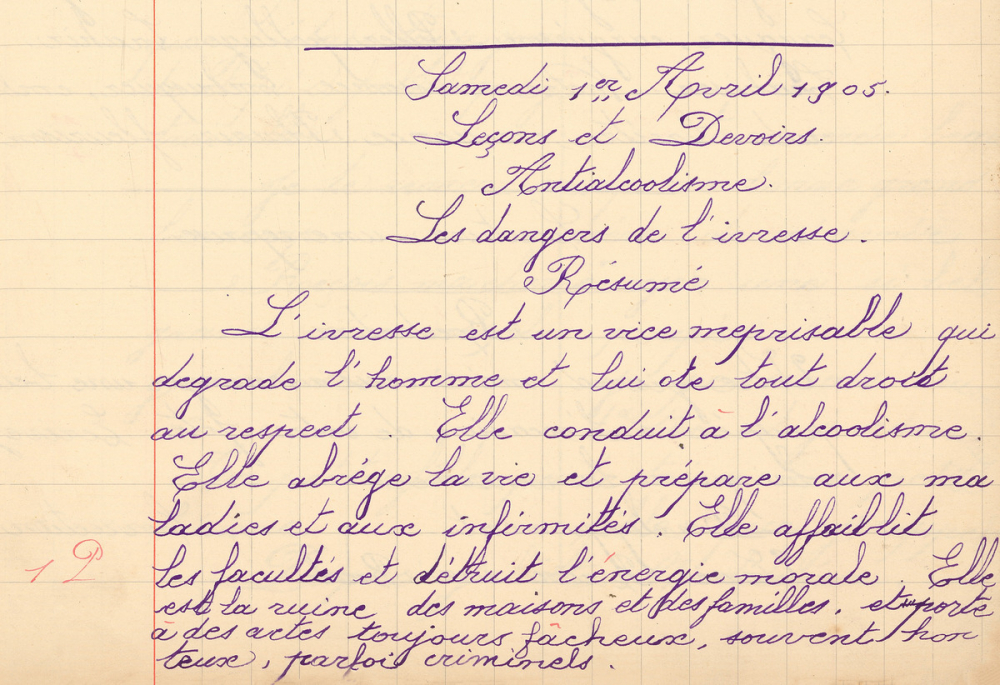 Samedi 1er Avril 1905.
Leçons et Devoirs.
Antialcoolisme.
Les dangers de l'ivresse.
Résumé
L'ivresse est un vice meprisable qui
degrade l'homme et lui ote tout droit
au respect. Elle conduit à l'alcoolisme.
Elle abrége la vie et prépare aux ma
ladies et aux infirmités. Elle affaiblit
1 P les facultés et détruit l'énergie morale. Elle
est la ruine des maisons et des familles. et porte
à des actes toujours fâcheux, souvent hon
teux, parfois criminels.